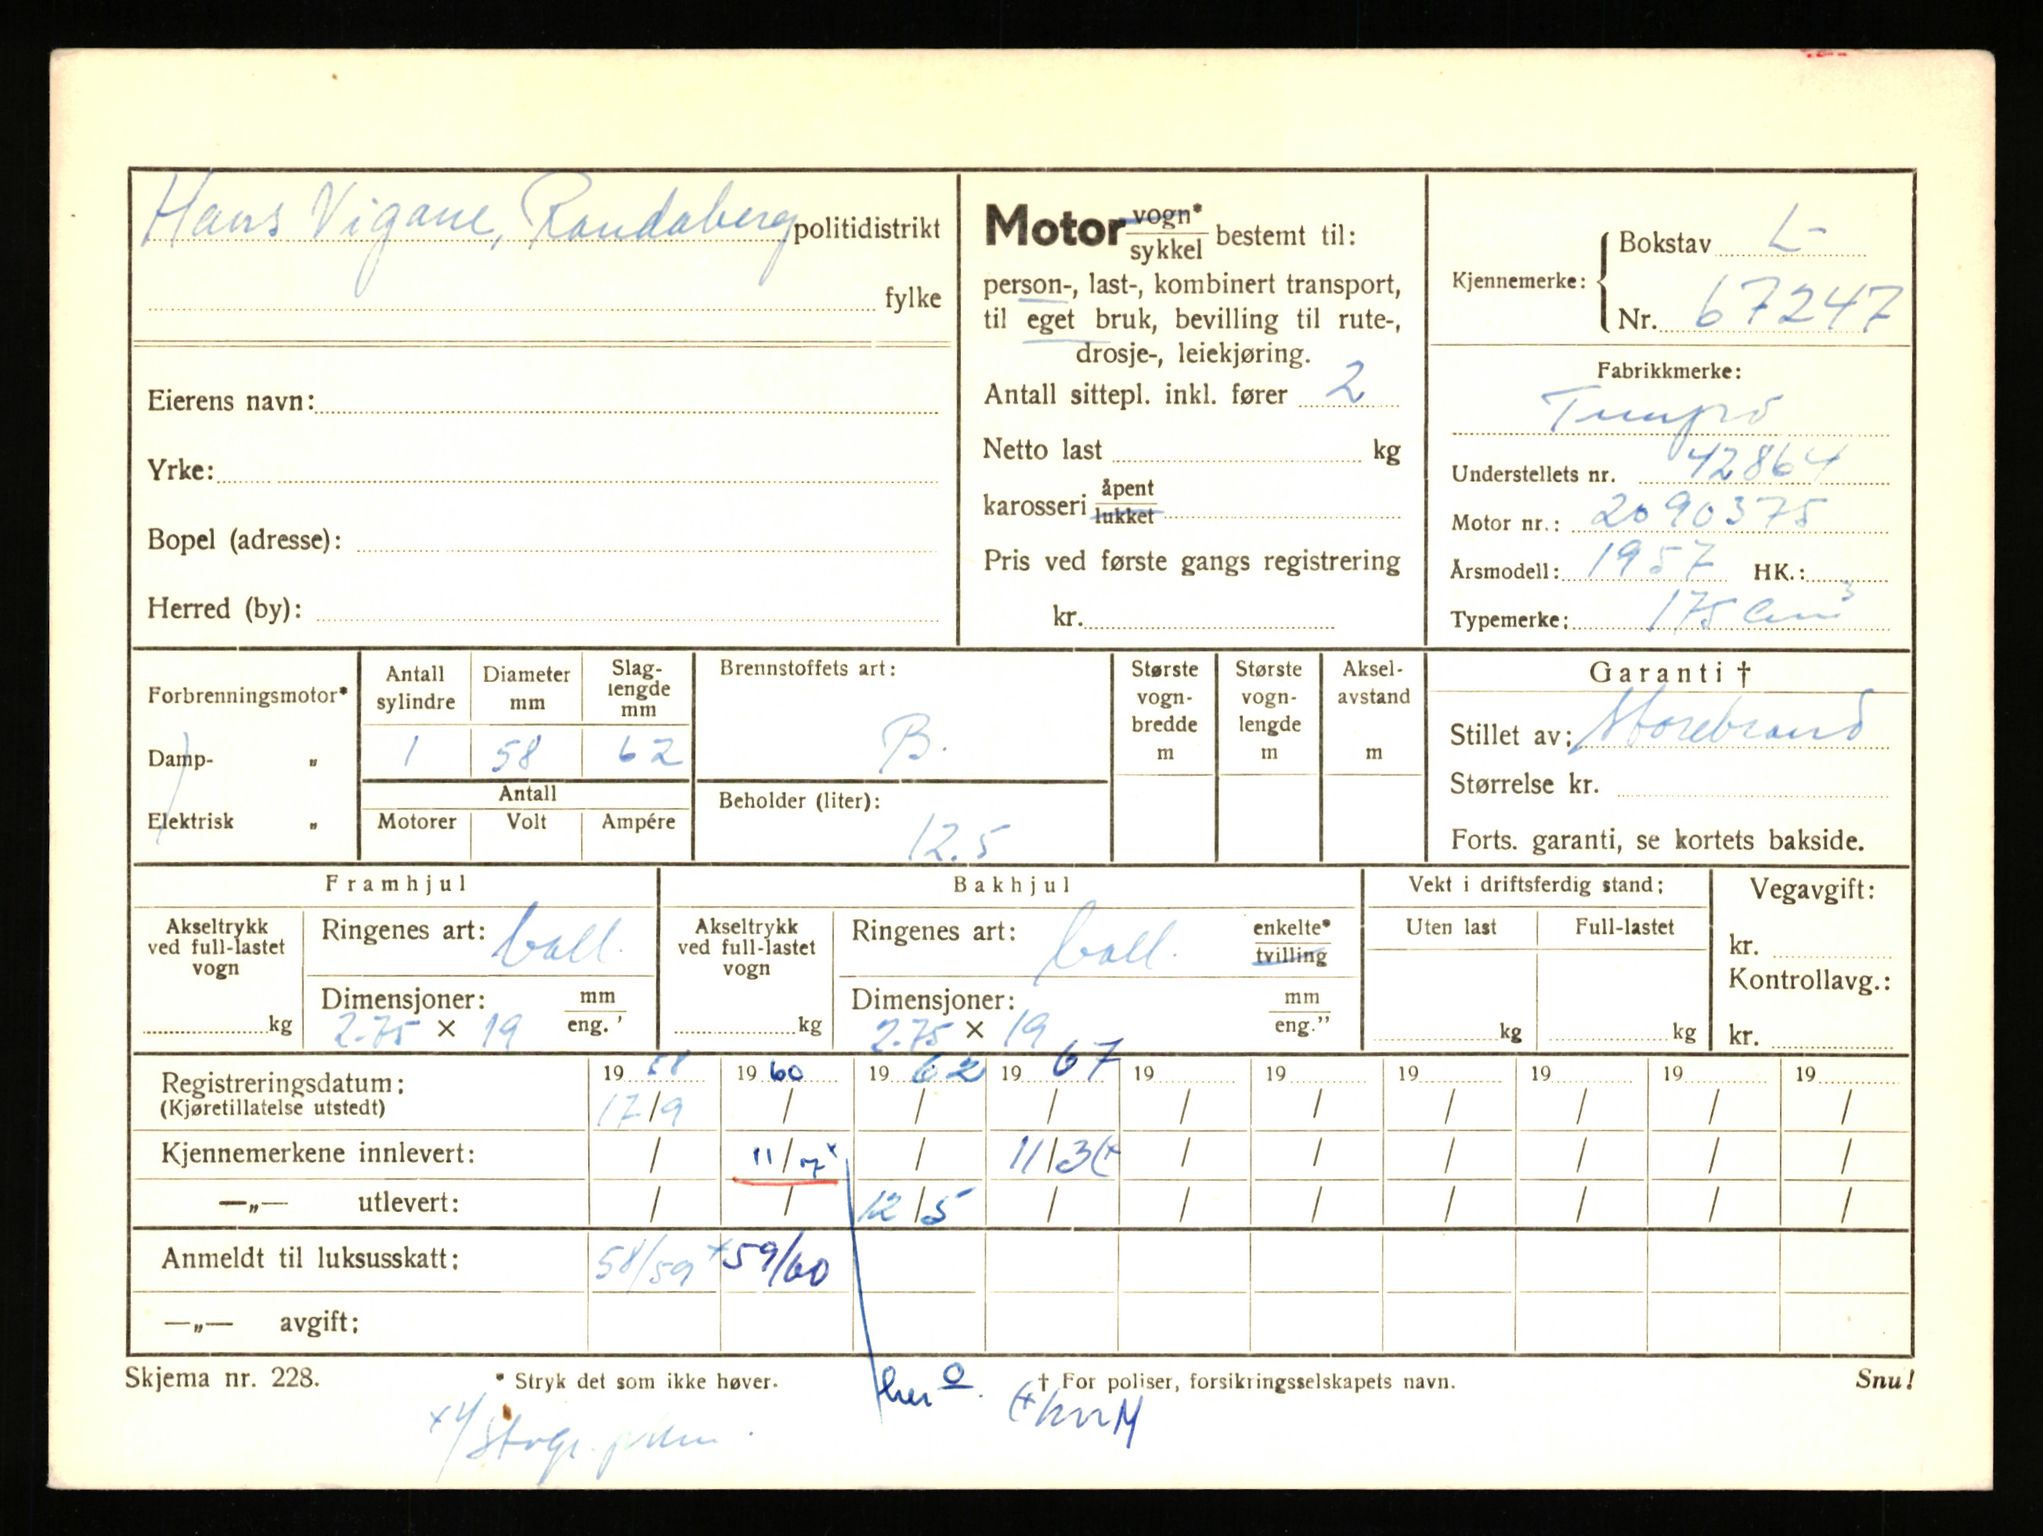 Hans Vigane, Randaberg politidistrikt
fylke
Eierens navn:
Yrke:
Bopel (adresse):
Herred (by):
Motor vogn* / sykkel bestemt til:
person-, last-, kombinert transport,
til eget bruk, bevilling til rute-,
drosje-, leiekjøring.
Antall sittepl. inkl. fører 2
Netto last kg
karosseri åpent / lukket
Pris ved første gangs registrering
kr.
Kjennemerke: Bokstav L-
Nr. 67247
Fabrikkmerke:
Tempo
Understellets nr. 42864
Motor nr.: 2090375
Årsmodell: 1957 HK.:
Typemerke: 175 cm³
Forbrenningsmotor*
Damp- „
Elektrisk „
Antall sylindre Diameter mm Slag-lengde mm
1 58 62
Antall
Motorer Volt Ampére
Brennstoffets art:
B.
Beholder (liter):
12.5
Største vogn-bredde m
Største vogn-lengde m
Aksel-avstand m
Garanti †
Stillet av: Storebrand
Størrelse kr.
Forts. garanti, se kortets bakside.
Framhjul
Akseltrykk ved full-lastet vogn
kg
Ringenes art: ball.
Dimensjoner: mm / eng.'
2.75 × 19
Bakhjul
Akseltrykk ved full-lastet vogn
kg
Ringenes art: ball. enkelte* / tvilling
Dimensjoner: mm / eng."
2.75 × 19
Vekt i driftsferdig stand:
Uten last Full-lastet
kg kg
Vegavgift:
kr.
Kontrollavg.:
kr.
Registreringsdatum: 19 58 19 60 19 62 19 67 19 19 19 19 19 19
(Kjøretillatelse utstedt) 17/9 / / / / / / / / /
Kjennemerkene innlevert: / 11/7x / 11/3(+ / / / / / /
—„— utlevert: / / 12/5 / / / / / / /
Anmeldt til luksusskatt: 58/59+ 59/60
—„— avgift:
Skjema nr. 228. * Stryk det som ikke høver. her o. † For poliser, forsikringsselskapets navn. Snu!